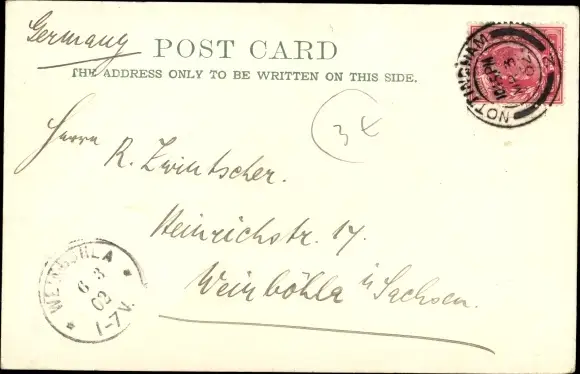 Germany
POST CARD
THE ADDRESS ONLY TO BE WRITTEN ON THIS SIDE.
NOTTINGHAM
3 x
Herrn
R. Zwintscher.
Heinrichstr. 17.
Weinböhla in Sachsen.
WEINBÖHLA
6 3
03
1-7V.